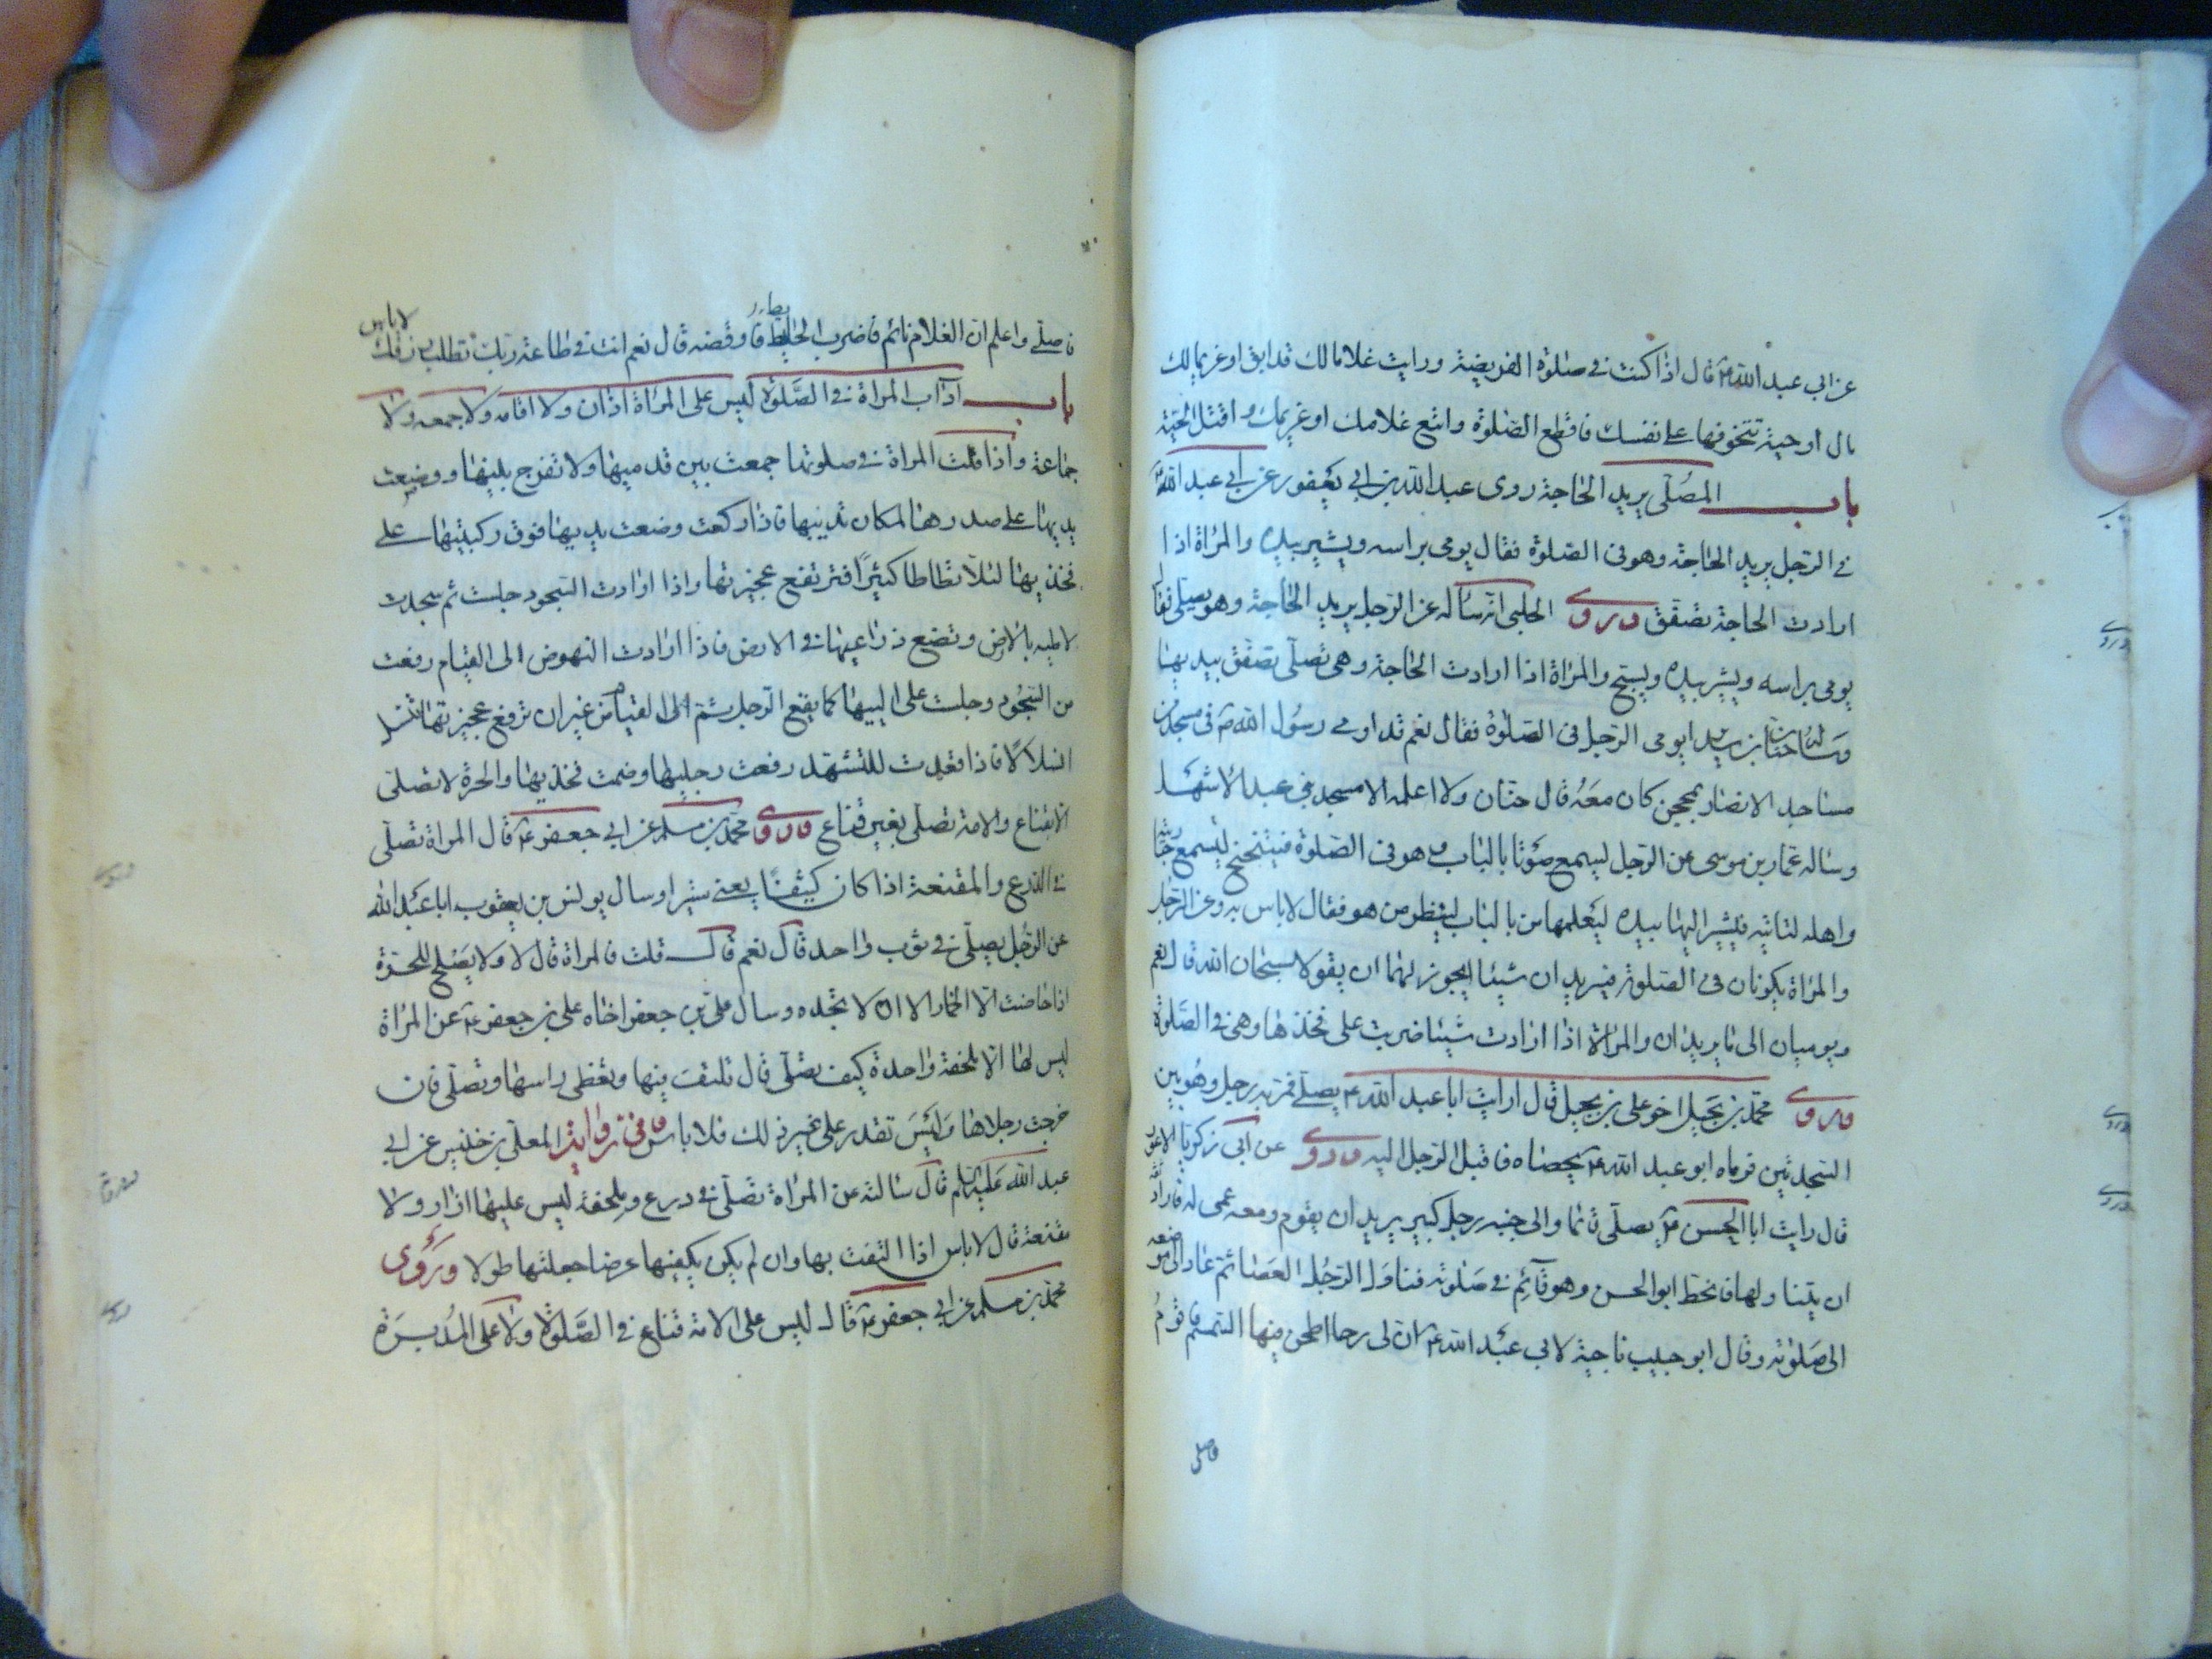 عن ابي عبد الله ع قال اذا كنت في صلوة الفريضة ورايت غلاما لك قد ابق او غريما لك
مال او حية تتخوفها على نفسك فاقطع الصلوة واتبع غلامك او غريمك و اقتل الحية
باب المصلى يريد الحاجة روى عبد الله بن ابي يعفور عن ابي عبد الله ع
في الرجل يريد الحاجة وهو في الصلوة فقال يومى براسه ويشير بيده والمراة اذا
ارادت الحاجة تصفق وروى الحلبى انه ساله عن الرجل يريد الحاجة وهو يصلى فقا
يومى براسه ويشير بيده ويسبح والمراة اذا ارادت الحاجة وهى تصلى تصفق بيديها
وساله حنان بن سدير ايومى الرجل فى الصلوة فقال نعم قد اومى رسول الله ص فى مسجد من
مساجد الانصار بمحجن كان معه قال حنان ولا اعلمه الا مسجد بنى عبد الاشهل
وساله عمار بن موسى عن الرجل يسمع صوتا بالباب و هو فى الصلوة فيتنحنح ليسمع جاريته
واهله لتاتيه فيشير اليها بيده ليعلمها من بالباب لينظر من هو فقال لا باس به وعن الرجل
والمراة يكونان فى الصلوة فيريدان شيئا ايجوز لهما ان يقولا سبحان الله قال نعم
ويوميان الى ما يريدان والمراة اذا ارادت شيئا ضربت على فخذها وهى فى الصلوة
وروى محمد بن بجيل اخو على بن بجيل قال رايت ابا عبد الله ع يصلى فمر به رجل وهو بين
السجدتين فرماه ابو عبد الله ع بحصاه فاقبل الرجل اليه وروى عن ابى زكريا الاعور
قال رايت ابا الحسن ع يصلى قائما والى جنبه رجل كبير يريد ان يقوم ومعه عصى له فاراد
ان يتناولها فانحط ابو الحسن وهو قائم في صلوته فناول الرجل العصا ثم عاد الى موضعه
الى صلوته وقال ابو حبيب ناجية لابى عبد الله ع ان لى رحا اطحن فيها السمسم فاقوم
فاصلى
فاصلى واعلم ان الغلام نائم فاضرب الحايط فاوقضه قال نعم انت في طاعة ربك تطلب رزقك
لا باس
باب اداب المراة في الصلوة ليس على المراة اذان ولا اقامه ولا جمعه ولا
جماعة واذا قامت المراة في صلوتها جمعت بين قدميها ولا تفرج بينها ووضعت
يديها على صدرها لمكان ثدييها فاذا ركعت وضعت يديها فوق ركبتيها على
فخذيها لئلا تطاطا كثيرا فترتفع عجيزتها واذا ارادت السجود جلست ثم سجدت
لاطيه بالارض وتضع ذراعيها في الارض فاذا ارادت النهوض الى القيام رفعت
من السجود وجلست على اليتيها كما يقع الرجل ثم الى القيام من غير ان ترفع عجيزتها تنسل
انسلالا فاذا قعدت للتشهد رفعت رجليها وضمت فخذيها والحرة لا تصلى
الا بقناع والامة تصلى بغير قناع وروى محمد بن مسلم عن ابي جعفر ع قال المراة تصلى
في الدرع والمقنعة اذا كان كثيفا يعنى ستيرا وسال يونس بن يعقوب ابا عبد الله
عن الرجل يصلى في ثوب واحد قال نعم قال قلت فالمراة قال لا ولا يصلح للحرة
اذا حاضت الا الخمار الا ان لا تجده وسال على بن جعفر اخاه على بن جعفر ع عن المراة
ليس لها الا ملحفة واحدة كيف تصلى قال تلتف فيها وتغطى راسها وتصلى فان
خرجت رجلاها وليس تقدر على غير ذلك فلا باس وفى رواية المعلى بن خنيس عن ابي
عبد الله عليه السلم قال سالته عن المراة تصلى في درع وملحفة ليس عليها ازار ولا
مقنعة قال لا باس اذا التفت بها وان لم يكن يكفيها عرضا جعلتها طولا وروى
محمد بن مسلم عن ابي جعفر ع قال ليس على الامة قناع في الصلوة ولا على المدبرة